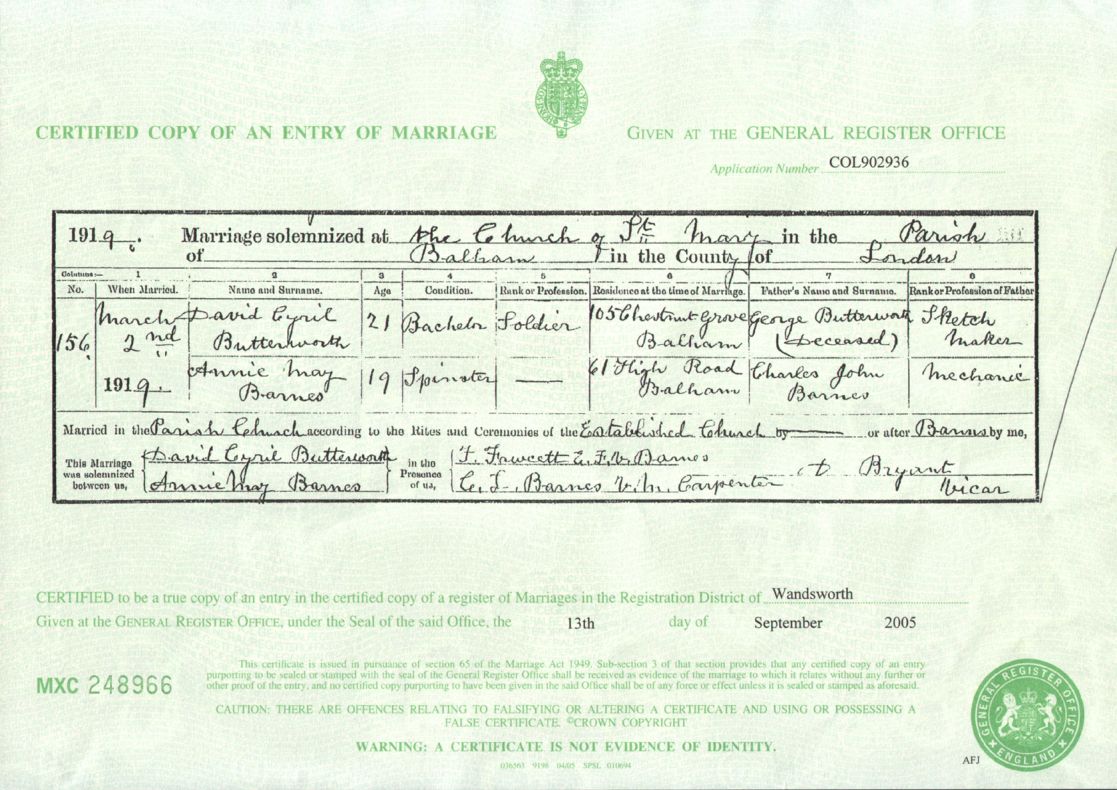 CERTIFIED COPY OF AN ENTRY OF MARRIAGE
GIVEN AT THE GENERAL REGISTER OFFICE
Application Number COL902936
1919. Marriage solemnized at the Church of St Mary in the Parish
of Balham in the County of London
Columns:— 1 2 3 4 5 6 7 8
No. When Married. Name and Surname. Age Condition. Rank or Profession. Residence at the time of Marriage. Father's Name and Surname. Rank or Profession of Father
156 March 2nd 1919. David Cyril Butterworth 21 Bachelor Soldier 105 Chestnut Grove Balham George Butterworth (Deceased) Sketch Maker
Annie May Barnes 19 Spinster — 61 High Road Balham Charles John Barnes Mechanic
Married in the Parish Church according to the Rites and Ceremonies of the Established Church by — or after Banns by me,
This Marriage was solemnized between us, David Cyril Butterworth Annie May Barnes
in the Presence of us, F. Fawcett E. F. V. Barnes
C. J. Barnes V. M. Carpenter
Bryant
Vicar
CERTIFIED to be a true copy of an entry in the certified copy of a register of Marriages in the Registration District of Wandsworth
Given at the GENERAL REGISTER OFFICE, under the Seal of the said Office, the 13th day of September 2005
MXC 248966
This certificate is issued in pursuance of section 65 of the Marriage Act 1949. Sub-section 3 of that section provides that any certified copy of an entry
purporting to be sealed or stamped with the seal of the General Register Office shall be received as evidence of the marriage to which it relates without any further or
other proof of the entry, and no certified copy purporting to have been given in the said Office shall be of any force or effect unless it is sealed or stamped as aforesaid.
CAUTION: THERE ARE OFFENCES RELATING TO FALSIFYING OR ALTERING A CERTIFICATE AND USING OR POSSESSING A
FALSE CERTIFICATE. ©CROWN COPYRIGHT
WARNING: A CERTIFICATE IS NOT EVIDENCE OF IDENTITY.
036563 9198 04/05 SPSL 010694
AFJ
GENERAL REGISTER OFFICE
ENGLAND